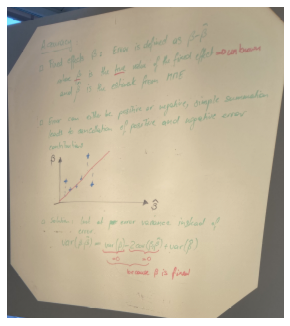 Accuracy
1. Fixed effects β: Error is defined as β-β̂
where β is the true value of the fixed effect
and β̂ is the estimate from
2. Error can either be positive or negative, simple summation
leads to cancellation of positive and negative error
contributions
β
β̂
Solution: look at error variance instead of
error
var(β-β̂) = var(β) - 2cov(β,β̂) + var(β̂)
=0 =0
because β is fixed